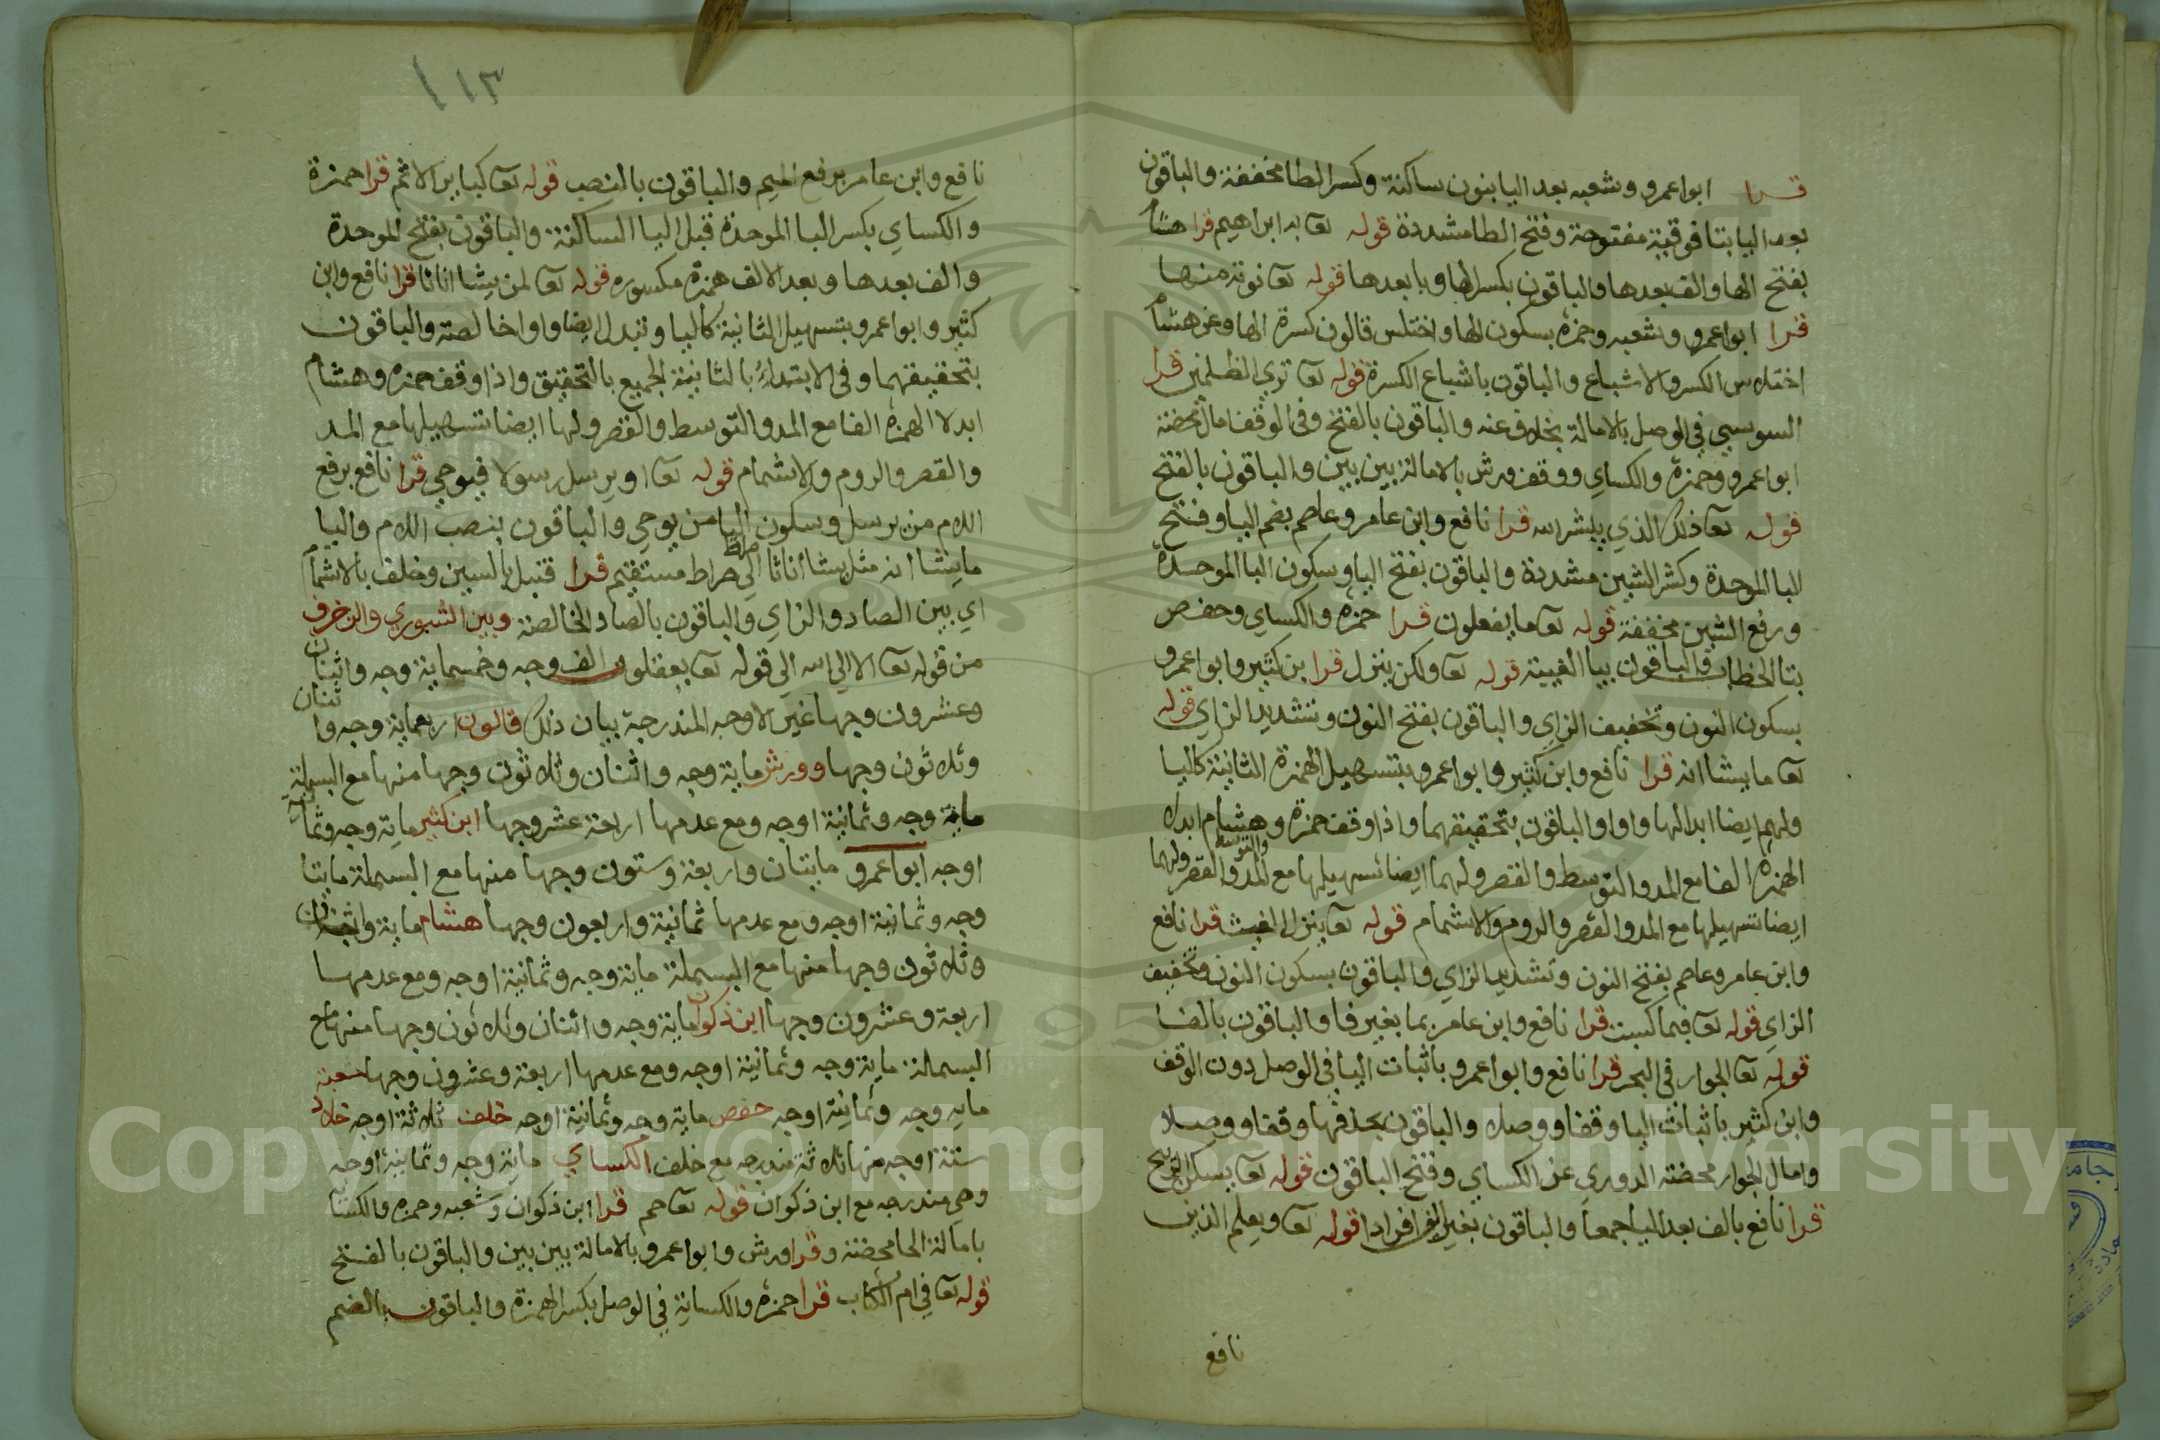 قرا ابوا عمرو وشعبه بعد اليا بنون ساكنة وكسر الطا مخففة والباقون
بعد اليا بتا فوقية مفتوحة وفتح الطا مشددة قوله تعا به ابراهيم قرا هشام
بفتح الها والف بعدها والباقون بكسر الها ويا بعدها قوله تعا نوته منها
قرا ابوا عمرو وشعبه وحمزه بسكون الها واختلس قالون كسرة الها وعن هشام
اختلاس الكسر والاشباع والباقون باشباع الكسرة قوله تعا تري الظلمين قرا
السوسي في الوصل بالامالة بخلاف عنه والباقون بالفتح وفي الوقف امال محضة
ابوا عمرو وحمزة والكساي ووقف ورش بالامالة بين بين والباقون بالفتح
قوله تعا ذلك الذي يبشر الله قرا نافع وابن عامر وعاصم بضم اليا وفتح
البا الموحدة وكسر الشين مشددة والباقون بفتح اليا وسكون البا الموحدة
ورفع الشين مخففة قوله تعا ما يفعلون قرا حمزه والكساي وحفص
بتا الخطاب والباقون بيا الغيبة قوله تعا ولكن ينزل قرا بن كثير وابوا عمرو
بسكون النون وتخفيف الزاي والباقون بفتح النون وتشديد الزاي قوله
تعا ما يشا انه قرا نافع وابن كثير وابوا عمرو بتسهيل الهمزة الثانية كاليا
ولهم ايضا ابدالها واوا والباقون بتحقيقهما واذا وقف حمزة وهشام ابدلا
الهمزه الفا مع المد والتوسط والقصر ولهما ايضا تسهيلها مع المد والتوسط والقصر ولهما
ايضا تسهيلها مع المد والقصر والروم والاشمام قوله تعا ينزل الغيث قرا نافع
وابن عامر وعاصم بفتح النون وتشديد الزاي والباقون بسكون النون وتخفيف
الزاي قوله تعا فيما كسبت قرا نافع وابن عامر بما بغير فا والباقون بالفا
قوله تعا الجوار في البحر قرا نافع وابوا عمرو باثبات اليا في الوصل دون الوقف
وابن كثير باثبات اليا وقفا ووصلا والباقون بحذفها وقفا ووصلا
وامال الجوار محضة الدوري عن الكساي وفتح الباقون قوله تعا يسكن الريح
قرا نافع بالف بعد اليا جمعا والباقون بغير الف افرادا قوله تعا ويعلم الذين
نافع
١١٣
نافع وابن عامر برفع الميم والباقون بالنصب قوله تعا كباير الاثم قرا حمزة
والكساي بكسر البا الموحدة قبل اليا الساكنة والباقون بفتح الموحدة
والف بعدها وبعد الالف همزة مكسوره قوله تعا لمن يشا اناثا قرا نافع وابن
كثير وابوا عمرو بتسهيل الثانية كاليا وتبدل ايضا واوا خالصة والباقون
بتحقيقهما وفي الابتداء بالثانية الجميع بالتحقيق واذا وقف حمزه وهشام
ابدلا الهمزه الفا مع المد والتوسط والقصر ولها ايضا تسهيلها مع المد
والقصر والروم والاشمام قوله تعا او يرسل رسولا فيوحي قرا نافع برفع
اللام من يرسل وسكون اليا من يوحي والباقون بنصب اللام واليا
ما يشا انه مثل يشا اناثا الي صراط مستقيم صراط قرا قنبل بالسين وخلف بالاشمام
اي بين الصاد والزاي والباقون بالصاد الخالصة وبين الشوري والزخرف
من قوله تعا الا الي الله الي قوله تعا يعقلون الف وجه وخمسماية وجه واثنان
وعشرون وجها غير الاوجه المندرجة بيان ذلك قالون اربعماية وجه واثنان
وثلاثون وجها وورش ماية وجه واثنان وثلاثون وجها منها مع البسملة
ماية وجه وثمانية اوجه ومع عدمها اربعة عشر وجها ابن كثير ماية وجه وثمانية
اوجه ابوا عمرو مايتان واربعة وستون وجها منها مع البسملة مايتا
وجه وثمانية اوجه ومع عدمها ثمانية واربعون وجها هشام ماية واثنان
وثلاثون وجها منها مع البسملة ماية وجه وثمانية اوجه ومع عدمها
اربعة وعشرون وجها ابن ذكوان ماية وجه واثنان وثلاثون وجها منها مع
البسملة ماية وجه وثمانية اوجه ومع عدمها اربعة وعشرون وجها شعبة
مايه وجه وثمانية اوجه حفص ماية وجه وثمانية اوجه خلف ثلاثة اوجه خلاد
ستة اوجه منها ثلاثة مندرجه مع خلف الكساي ماية وجه وثمانية اوجه
وهي مندرجه مع ابن ذكوان قوله تعا حم قرا ابن ذكوان وشعبه وحمزه والكساي
بامالة الحا محضة وقرا ورش وابوا عمرو بالامالة بين بين والباقون بالفتح
قوله تعا في ام الكتاب قرا حمزه والكساية في الوصل بكسر الهمزة والباقون بالضم
Copyright © King Saud University
1957